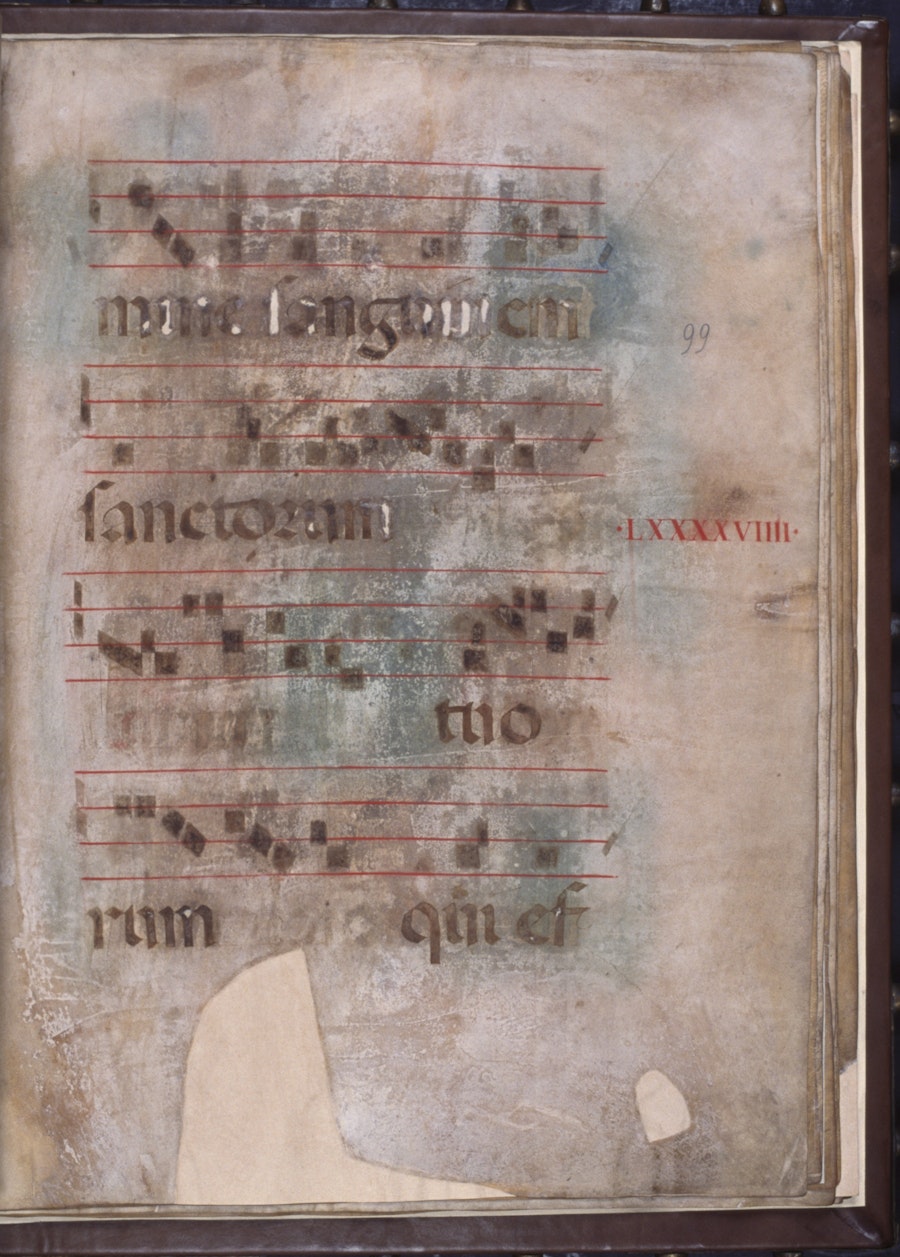 mine sanguinem
99
sanctorum
·LXXXXVIIII·
tuo
rum qui ef